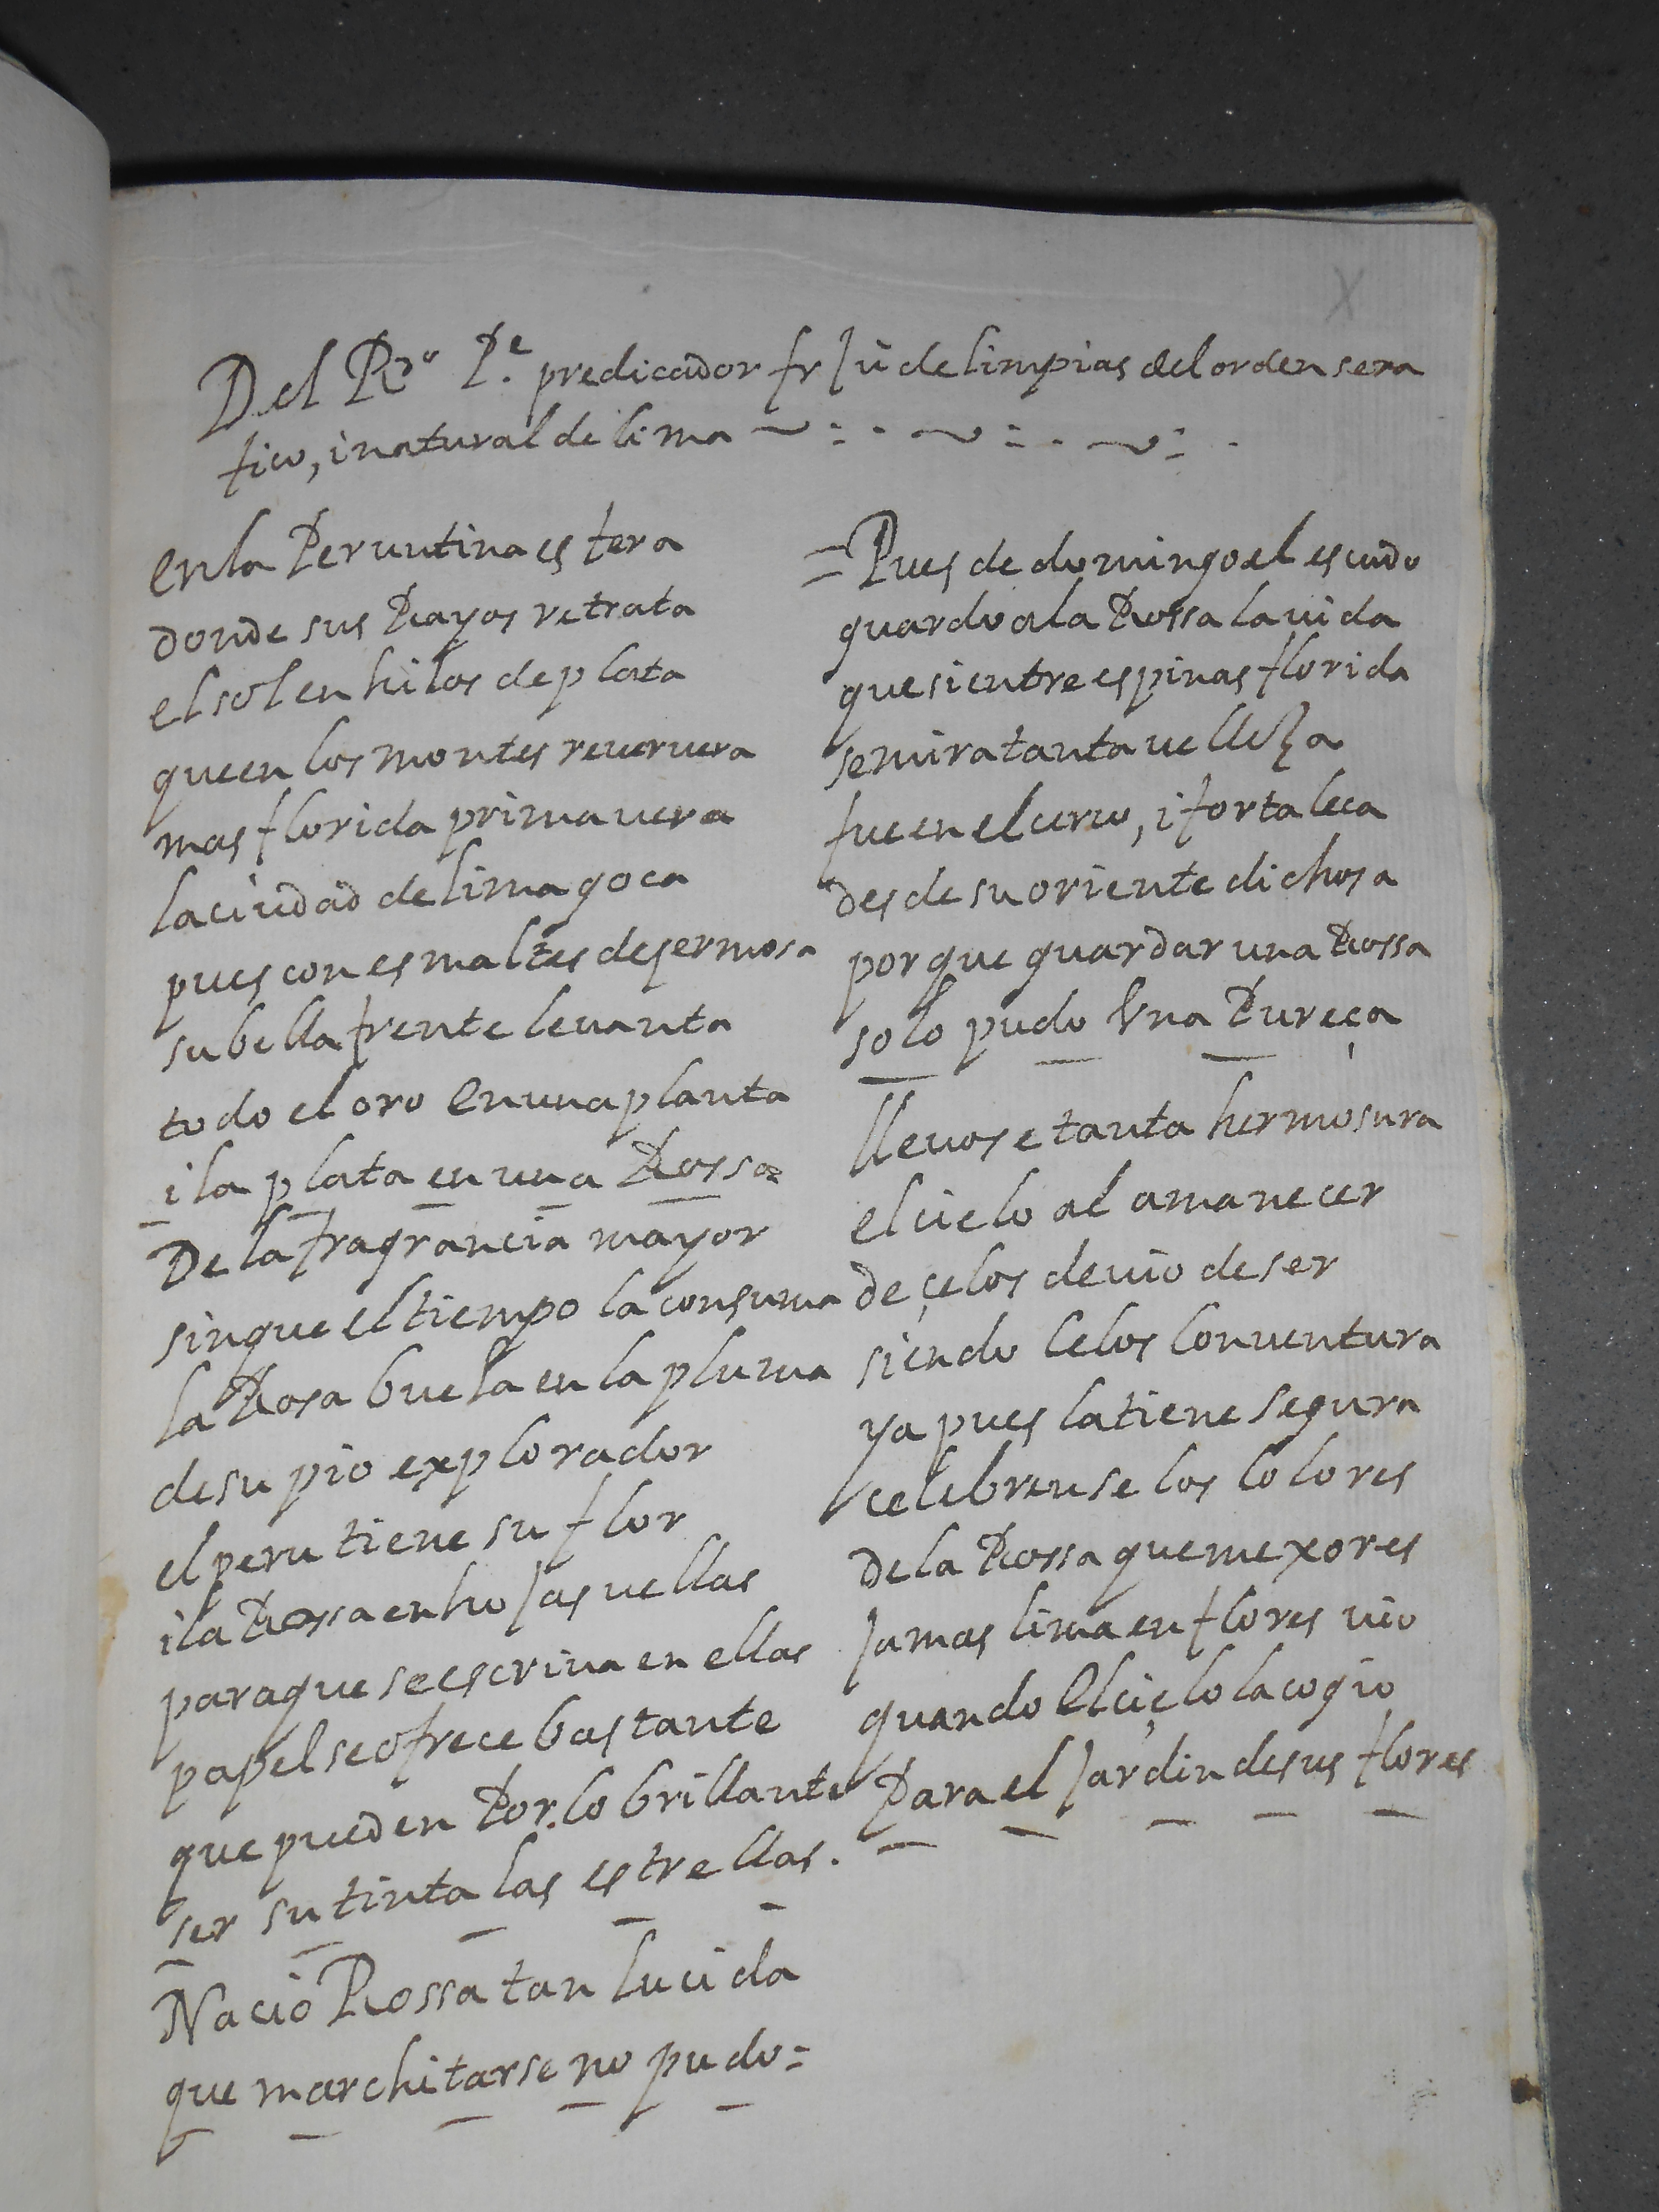 Del Rdo Pe. predicador fr Ju de limpias del orden sera
fico, i natural de lima ~ : · ~ : · ~ : ·
en la Peruntina esfera
donde sus Rayos retrata
el sol en hilos de plata
que en los montes reuervera
mas florida primauera
la ciudad de lima goca
pues con esmaltes de jermosa
su bella frente leuanta
todo el oro en una planta
i la plata en una Rossa
De la fragrancia mayor
sin que el tiempo la consuma
la Rosa buela en la pluma
de su pio explorador
el peru tiene su flor
i la Rossa en hojas uellas
para que se escriua en ellas
papel se ofrece bastante
que pueden Por lo brillante
ser su tinta las estrellas.
Nacio Rossa tan lucida
que marchitarse no pudo =
= Pues de domingo el escudo
guardo a la Rossa la uida
que si entre espinas florida
se mira tanta uelleza
fue en el cerco, i fortaleca
desde su oriente dichosa
porque guardar una Rossa
solo pudo Una Pureça
lleuose tanta hermosura
el cielo al amanecer
de çelos deuio de ser
siendo Celos Conuentura
ya pues la tiene segura
celebrense los Colores
de la Rossa que mexores
Jamas lima en flores uio
quando El çielo la cogio
Para el Jardin de sus flores